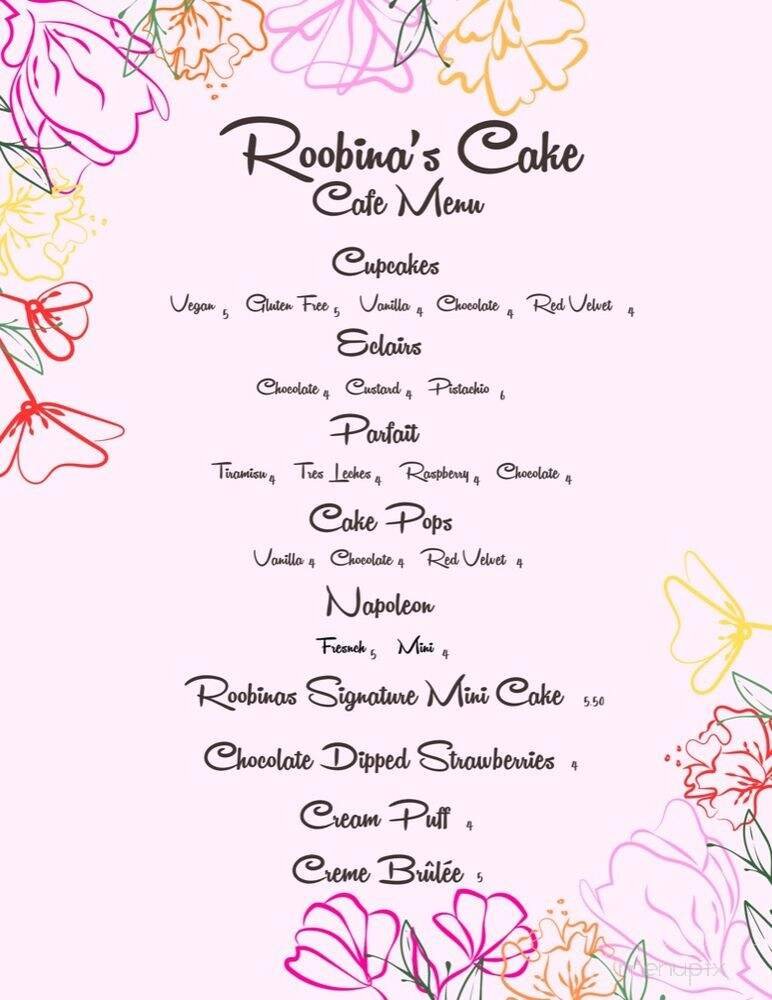 Roobina's Cake
Cafe Menu
Cupcakes
Vegan 5 Gluten Free 5 Vanilla 4 Chocolate 4 Red Velvet 4
Eclairs
Chocolate 4 Custard 4 Pistachio 6
Parfait
Tiramisu 4 Tres Leches 4 Raspberry 4 Chocolate 4
Cake Pops
Vanilla 4 Chocolate 4 Red Velvet 4
Napoleon
Fresnch 5 Mini 4
Roobinas Signature Mini Cake 5.50
Chocolate Dipped Strawberries 4
Cream Puff 4
Creme Brûlée 5
menupix